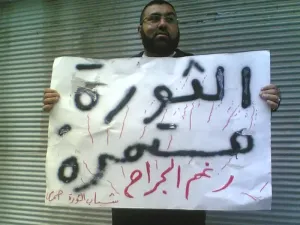 الثورة
مستمرة
رغم الجراح
شباب الثورة